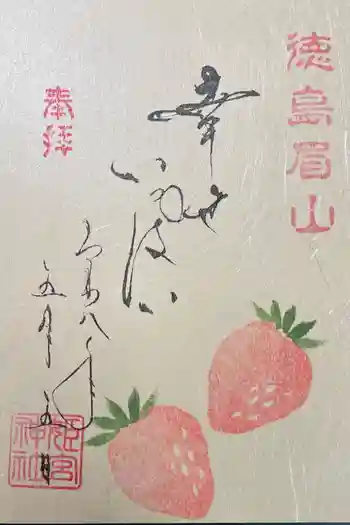 徳島眉山
奉拝
幸せ
いっぱい
令和八年
五月五日
姫宮神社